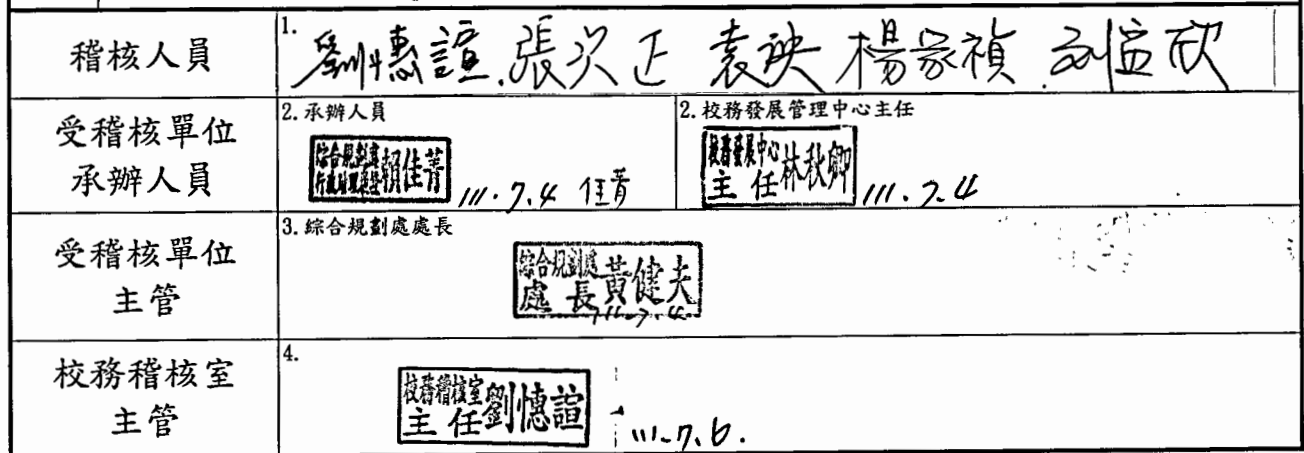 稽核人員
1. 劉惠諠 張次正 袁訣 楊家禎 劉益欣
受稽核單位
承辦人員
2.承辦人員
賴佳菁
111.7.4 佳菁
2.校務發展管理中心主任
校務發展中心
主任 林秋卿
111.7.4
受稽核單位
主管
3.綜合規劃處處長
綜合規劃處
處長 黃健夫
111.7.4
校務稽核室
主管
4.
校務稽核室
主任 劉憓諠
111.7.6.